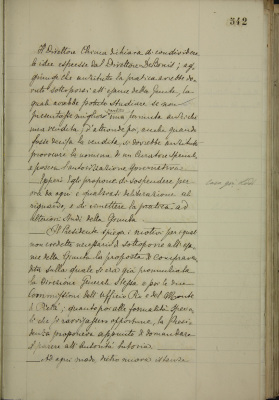 342
Il Direttore Perna dichiara di condividere
le idee espresse dal Direttore De Denis; ag-
giunge che anzitutto la pratica avrebbe do-
vuto sottoporsi all'esame della Giunta, la
quale avrebbe potuto studiare se non
presentasse migliore una formula anziché
una vendita. D'altronde poi, anche quando
fosse decisa la vendita, si dovrebbe anzitutto
provocare la nomina di un Curatore speciale
e poscia l'autorizzazione governativa.
Laonde Egli propone di soprassedere per
ora da ogni e qualsiasi deliberazione al
riguardo, e di rimettere la pratica ad
ulteriori studi della Giunta.
Il Presidente spiega i motivi per i quali
non credette necessario di sottoporre all'esa-
me della Giunta la proposta di compraven-
dita sulla quale si era già pronunciata
la Direzione Generale stessa e poi le due
Commissioni dell'Ufficio Pio e del Monte
di Pietà; quanto poi alle formalità specia-
li che si ravvisassero opportune, la Presi-
denza proponeva appunto di domandare
il parere all'Autorità tutoria.
Ad ogni modo dietro nuova istanza